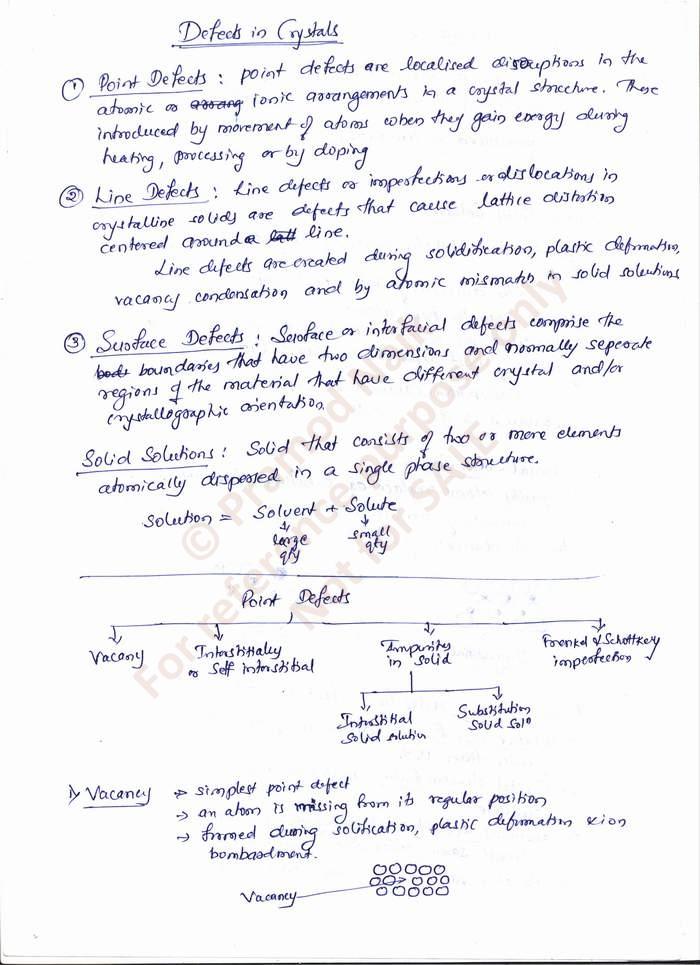 Defects in Crystals
① Point Defects : point defects are localised disruptions in the
atomic or arrang ionic arrangements in a crystal structure. These
introduced by movement of atoms when they gain energy during
heating, processing or by doping
② Line Defects : Line defects or imperfections or dislocations in
crystalline solids are defects that cause lattice distortion
centered around a latt line.
Line defects are created during solidification, plastic deformation,
vacancy condensation and by atomic mismatch in solid solutions
③ Surface Defects : Surface or interfacial defects comprise the
bods boundaries that have two dimensions and normally seperate
regions of the material that have different crystal and/or
crystallographic orientation.
Solid Solutions : Solid that consists of two or more elements
atomically dispersed in a single phase structure.
Solution = Solvent + Solute
large small
qty qty
Point Defects
Vacany Interstitially Impurity Frenkel & Schottkey
or Self interstitial in solid imperfection
Interstitial Substitution
Solid solution Solid Sol⁰
1) Vacancy → simplest point defect
→ an atom is missing from its regular position
→ formed during solification, plastic deformation & ion
bombardment.
Vacancy
© Pramod Naik
For reference purpose only
Not for SALE